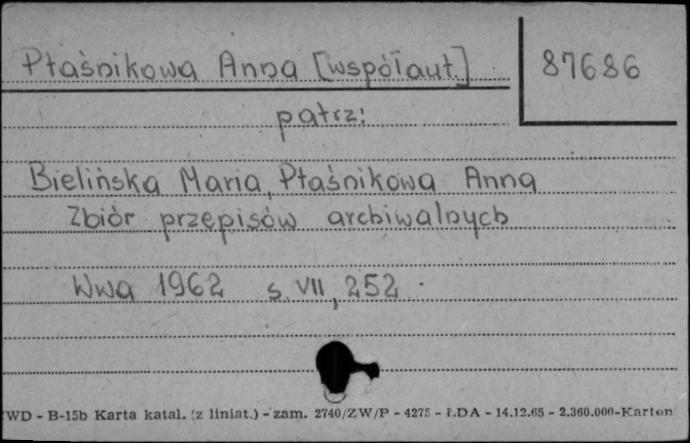 Ptaśnikowa Anna [współaut.] 87686
patrz:
Bielińska Maria, Ptaśnikowa Anna
Zbiór przepisów archiwalnych
Wwa 1962 s. VII, 252
WD - B-15b Karta katal. (z liniat.) - zam. 2740/ZW/P - 4275 - ŁDA - 14.12.65 - 2.360.000-Karton